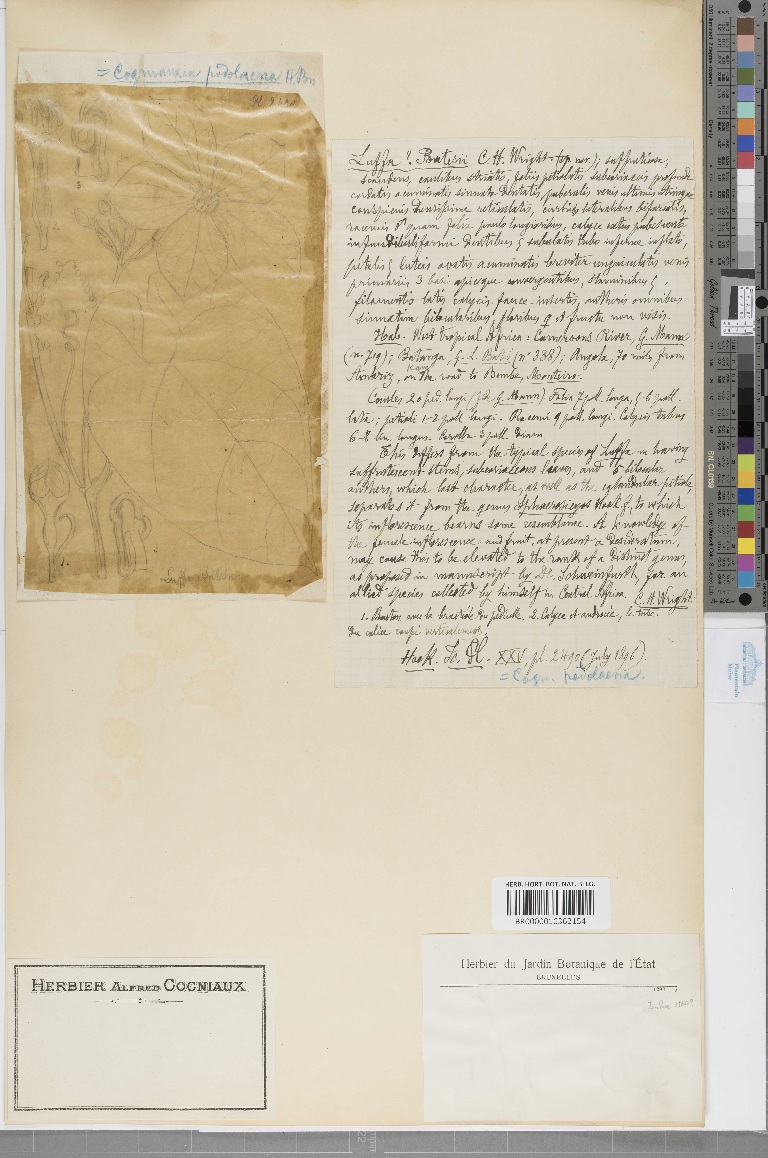 = Cogniauxia podolaena H. Bn
Luffa ? Batesii C. H. Wright (sp. nov.); suffruticosa,
scandens, caulibus striatis, foliis petiolatis subcoriaceis profunde
cordatis acuminatis sinuato-dentatis, puberulis venis ultimis utrinque
conspicuis densissime reticulatis, cirrhis lateralibus bifurcatis,
racemis ♂ quam folia paulo longioribus, calyce extus pubescente
infundibuliformi dentibus 5 subulatis tubo inferne inflato,
petalis 5 luteis ovatis acuminatis breviter unguiculatis venis
primariis 3 basi apiceque convergentibus, staminibus 5,
filamentis latis calycis fauce insertis, antheris omnibus
sinuatim bilocularibus, floribus ♀ et fructu non visis.
Hab. West Tropical Africa: Cameroons River, G. Mann
(n. 719); Batanga, G. L. Bates (n° 338); Angola, 70 miles from
on the road to Bembe, Monteiro.
Caules 20 ped. longi (fide G. Mann). Folia 7 poll. longa, 5-6 poll.
lata; petioli 1-2 poll. longi. Racemi 9 poll. longi. Calycis tubus
6-8 lin. longus. Corolla 3 poll. diam.
This differs from the typical species of Luffa in having
suffrutescent stems, subcoriaceous leaves, and 5 bilocular
anthers, which last character, as well as the cylindrical petiole,
separates it from the genus Sphaerosicyos Hook. f., to which
its inflorescence bears some resemblance. A knowledge of
the female inflorescence and fruit, at present a desideratum,
may cause this to be elevated to the rank of a distinct genus,
as proposed in manuscript by Dr. Schweinfurth, for an
allied species collected by himself in Central Africa. C. H. Wright.
1. Bouton avec la bractéole du pédicelle. 2. Calyce et androcée, le tube
du calice coupé verticalement.
Hook. Ic. Pl. XXV, pl. 2490 (July 1896).
= Cogn. podolaena.
HERB. HORT. BOT. NAT. BELG.
BR0000016362154
Herbier du Jardin Botanique de l'État
BRUXELLES
HERBIER ALFRED COGNIAUX